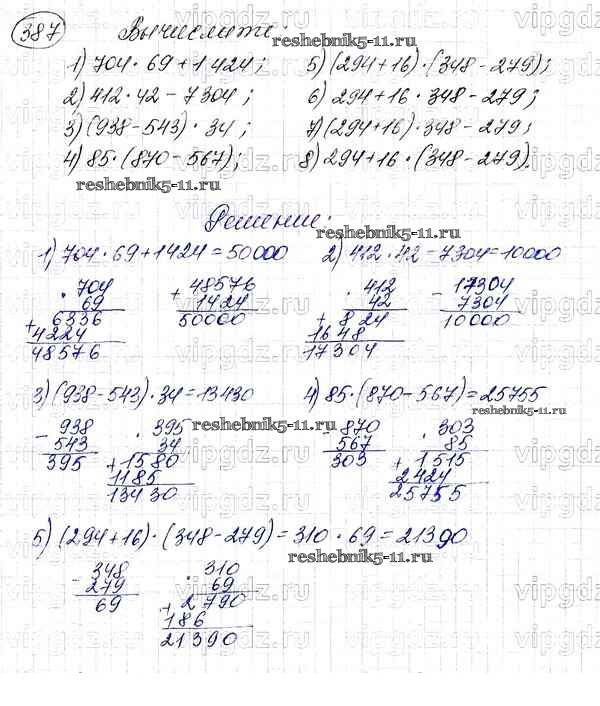 387 Вычислить:
reshebnik5-11.ru
1) 704 · 69 + 1424; 5) (294+16) · (348 - 279);
2) 412 · 42 - 7304; 6) 294 + 16 · 348 - 279;
3) (938 - 543) · 34; 7) (294+16) · 348 - 279;
4) 85 · (870 - 567); 8) 294 + 16 · (348 - 279).
reshebnik5-11.ru
Решение:
reshebnik5-11.ru
1) 704 · 69 + 1424 = 50000 2) 412 · 42 - 7304 = 10000
· 704 + 48576 · 412 - 17304
69 1424 42 7304
+ 6336 50000 + 824 10000
4224 1648
48576 17304
3) (938 - 543) · 34 = 13430 4) 85 · (870 - 567) = 25755
reshebnik5-11.ru
- 938 · 395 - 870 · 303
reshebnik5-11.ru
543 34 567 85
395 + 1580 303 + 1515
1185 2424
13430 25755
5) (294+16) · (348 - 279) = 310 · 69 = 21390
reshebnik5-11.ru
- 348 · 310
279 69
69 + 2790
186
21390
vipgdz.ru